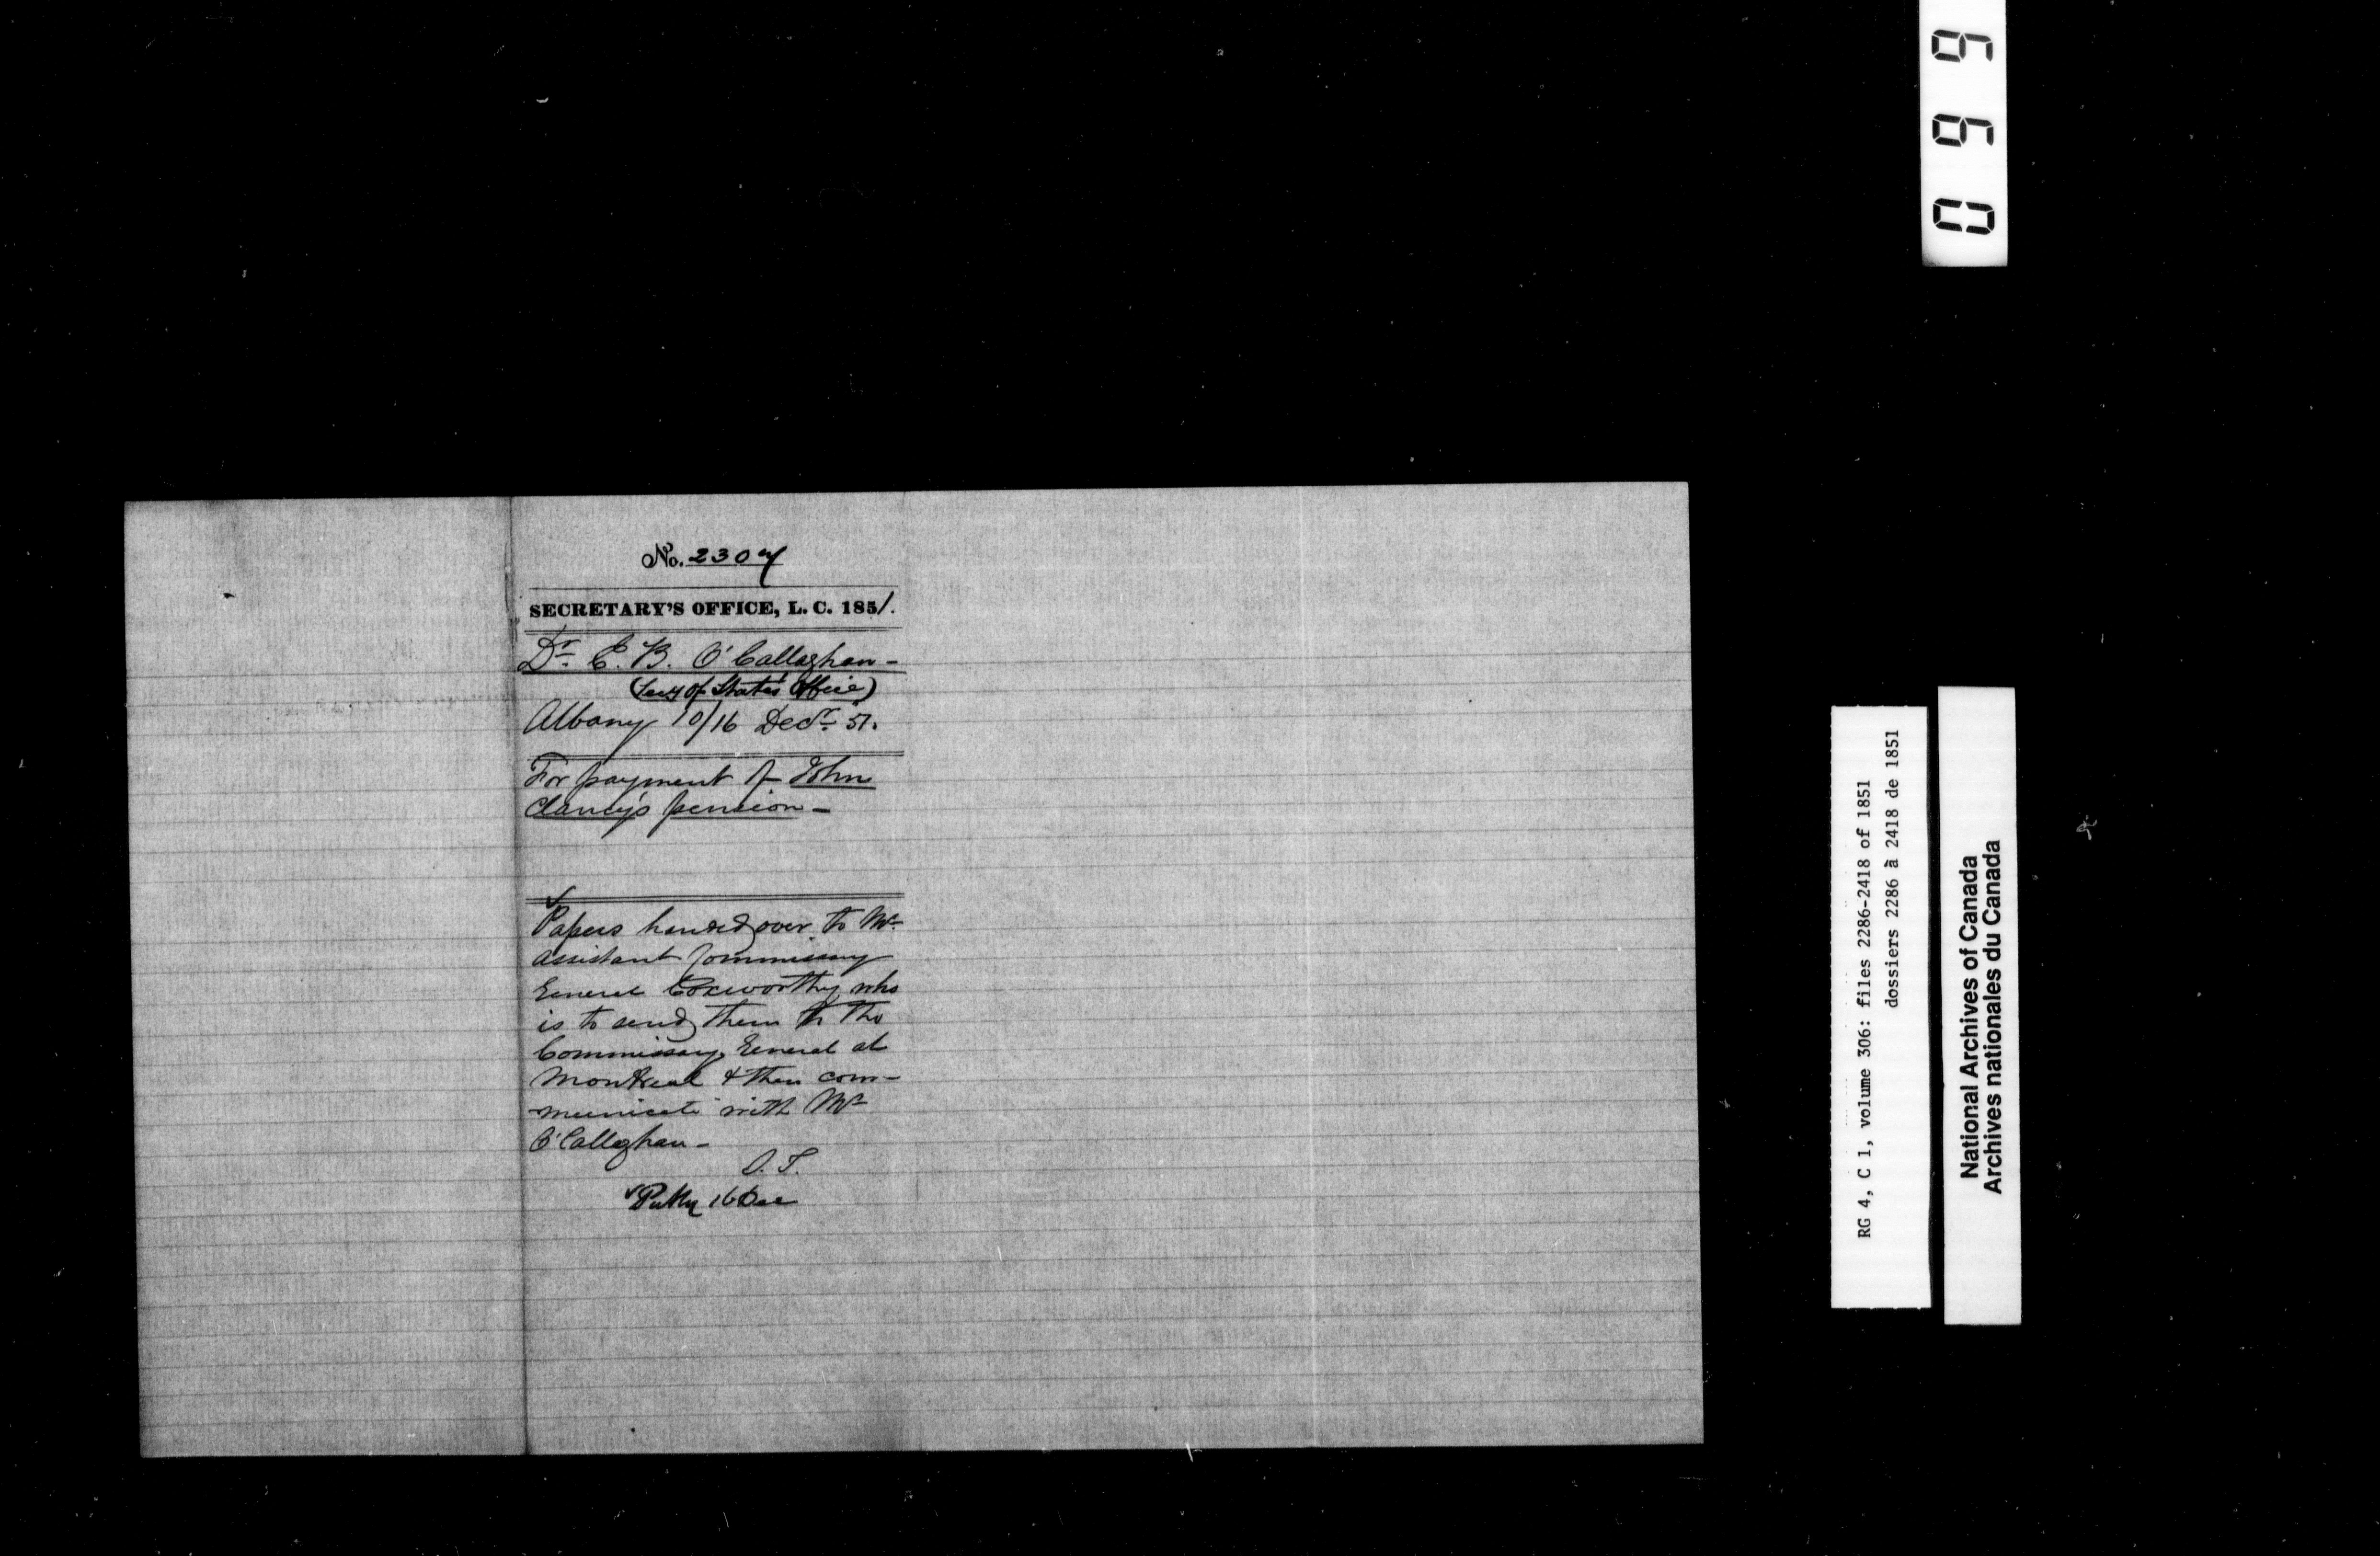 No. 2307
SECRETARY'S OFFICE, L. C. 1851.
Dr. E. B. O'Callaghan -
(Secy of State's Office)
Albany 10/16 Decr. 51.
For payment of John
Clancy's pension -
Papers handed over to Mr.
Assistant Commissary
General Coxworthy who
is to send them to the
Commissary General at
Montreal & then com-
municate with Mr
O'Callaghan -
16 Dec
0 9 9
RG 4, C 1, volume 306: files 2286-2418 of 1851
dossiers 2286 à 2418 de 1851
National Archives of Canada
Archives nationales du Canada